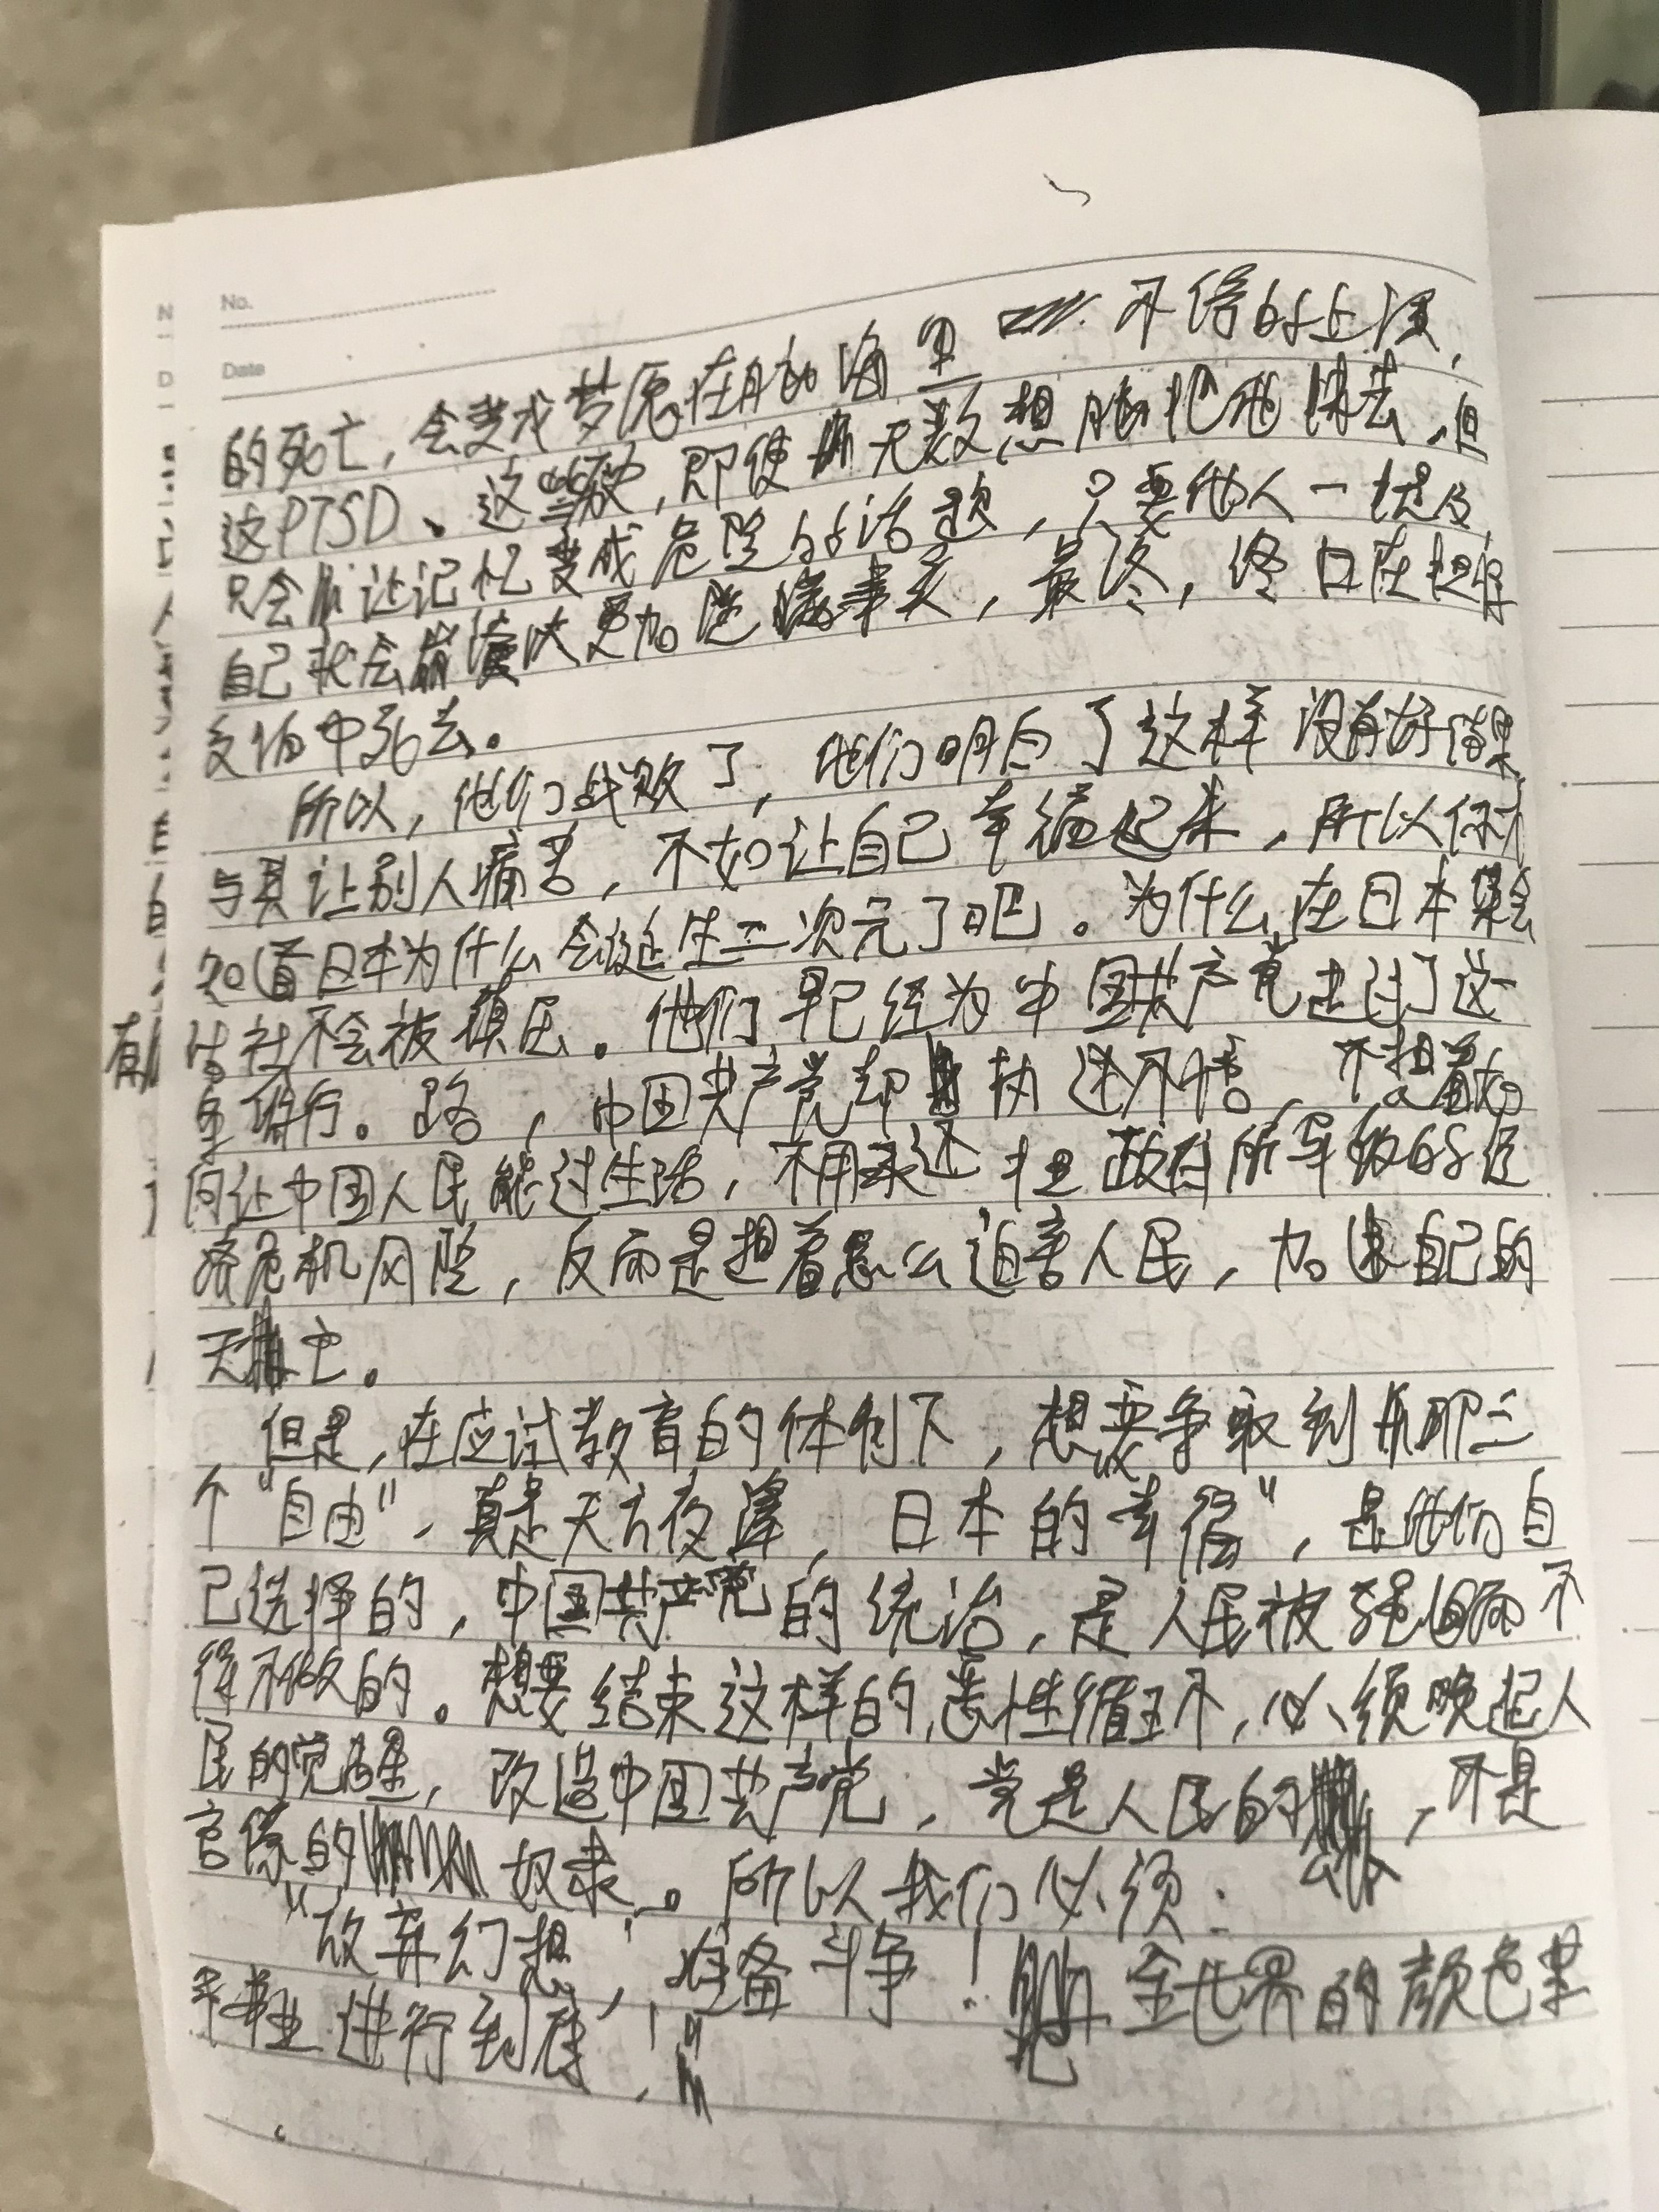 No.
Date
的死亡，会变成梦魇在脑海里 不停的上演，
这PTSD、这些，即使无数想 把他抹去，但
只会让记忆变成危险的话题，只要他人一提及，
自己就会崩溃 更加 ，最终，终日在
中死去。
所以，他们战败了，他们明白了这样没有好结果，
与其让别人痛苦，不如让自己幸福起来，所以你才
知道日本为什么会诞生二次元了吧。为什么在日本集会
有 结社不会被镇压。他们早已经为中国共产党走过了这一
行。路，中国共产党却执迷不悟，不想着如
何让中国人民能过生活，不用承担政府所导致的经
济危机风险，反而是想着怎么迫害人民，加速自己的
灭亡。
但是，在应试教育的体制下，想要争取到那三
个“自由”，真是天方夜谭，日本的幸福”，是他们自
己选择的，中国共产党的统治，是人民被强迫而不
得不做的。想要结束这样的恶性循环，必须唤起人
民的觉醒，改造中国共产党，党是人民的 ，不是
官僚的 奴隶。所以我们必须：
“放弃幻想，准备斗争！把全世界的颜色革
命 进行到底！”